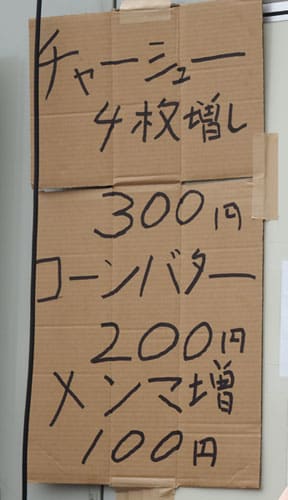 チャーシュー
4枚増し
300円
コーンバター
200円
メンマ増
100円